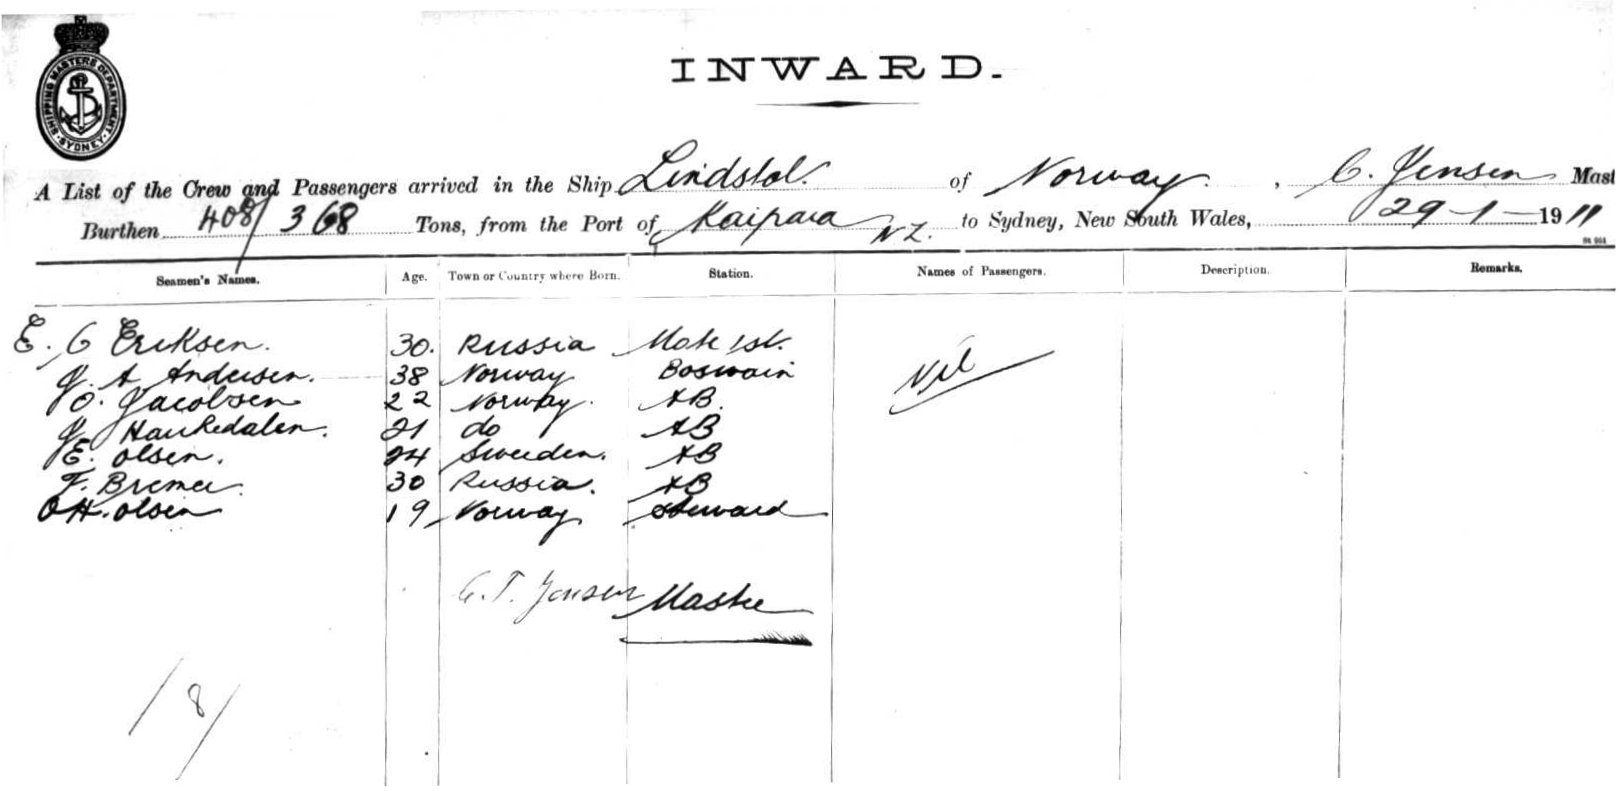 SHIPPING MASTERS DEPARTMENT
SYDNEY
INWARD.
A List of the Crew and Passengers arrived in the Ship Lindstol. of Norway. , C. Jensen Mast
Burthen 408/368 Tons, from the Port of Kaipara NZ. to Sydney, New South Wales, 29-1-1911
Seamen's Names. Age. Town or Country where Born. Station. Names of Passengers. Description. Remarks.
E. C Eriksen. 30. Russia Mate 1st. Nil
J. A Andersen. 38 Norway Boswain
O. Jacobsen 22 Norway. AB.
J Haukedalen. 21 do AB
E. Olsen. 24 Sweden. AB
F. Bremer. 30 Russia. AB
O H. Olsen 19 Norway Steward
C. T. Jensen Master
/8/